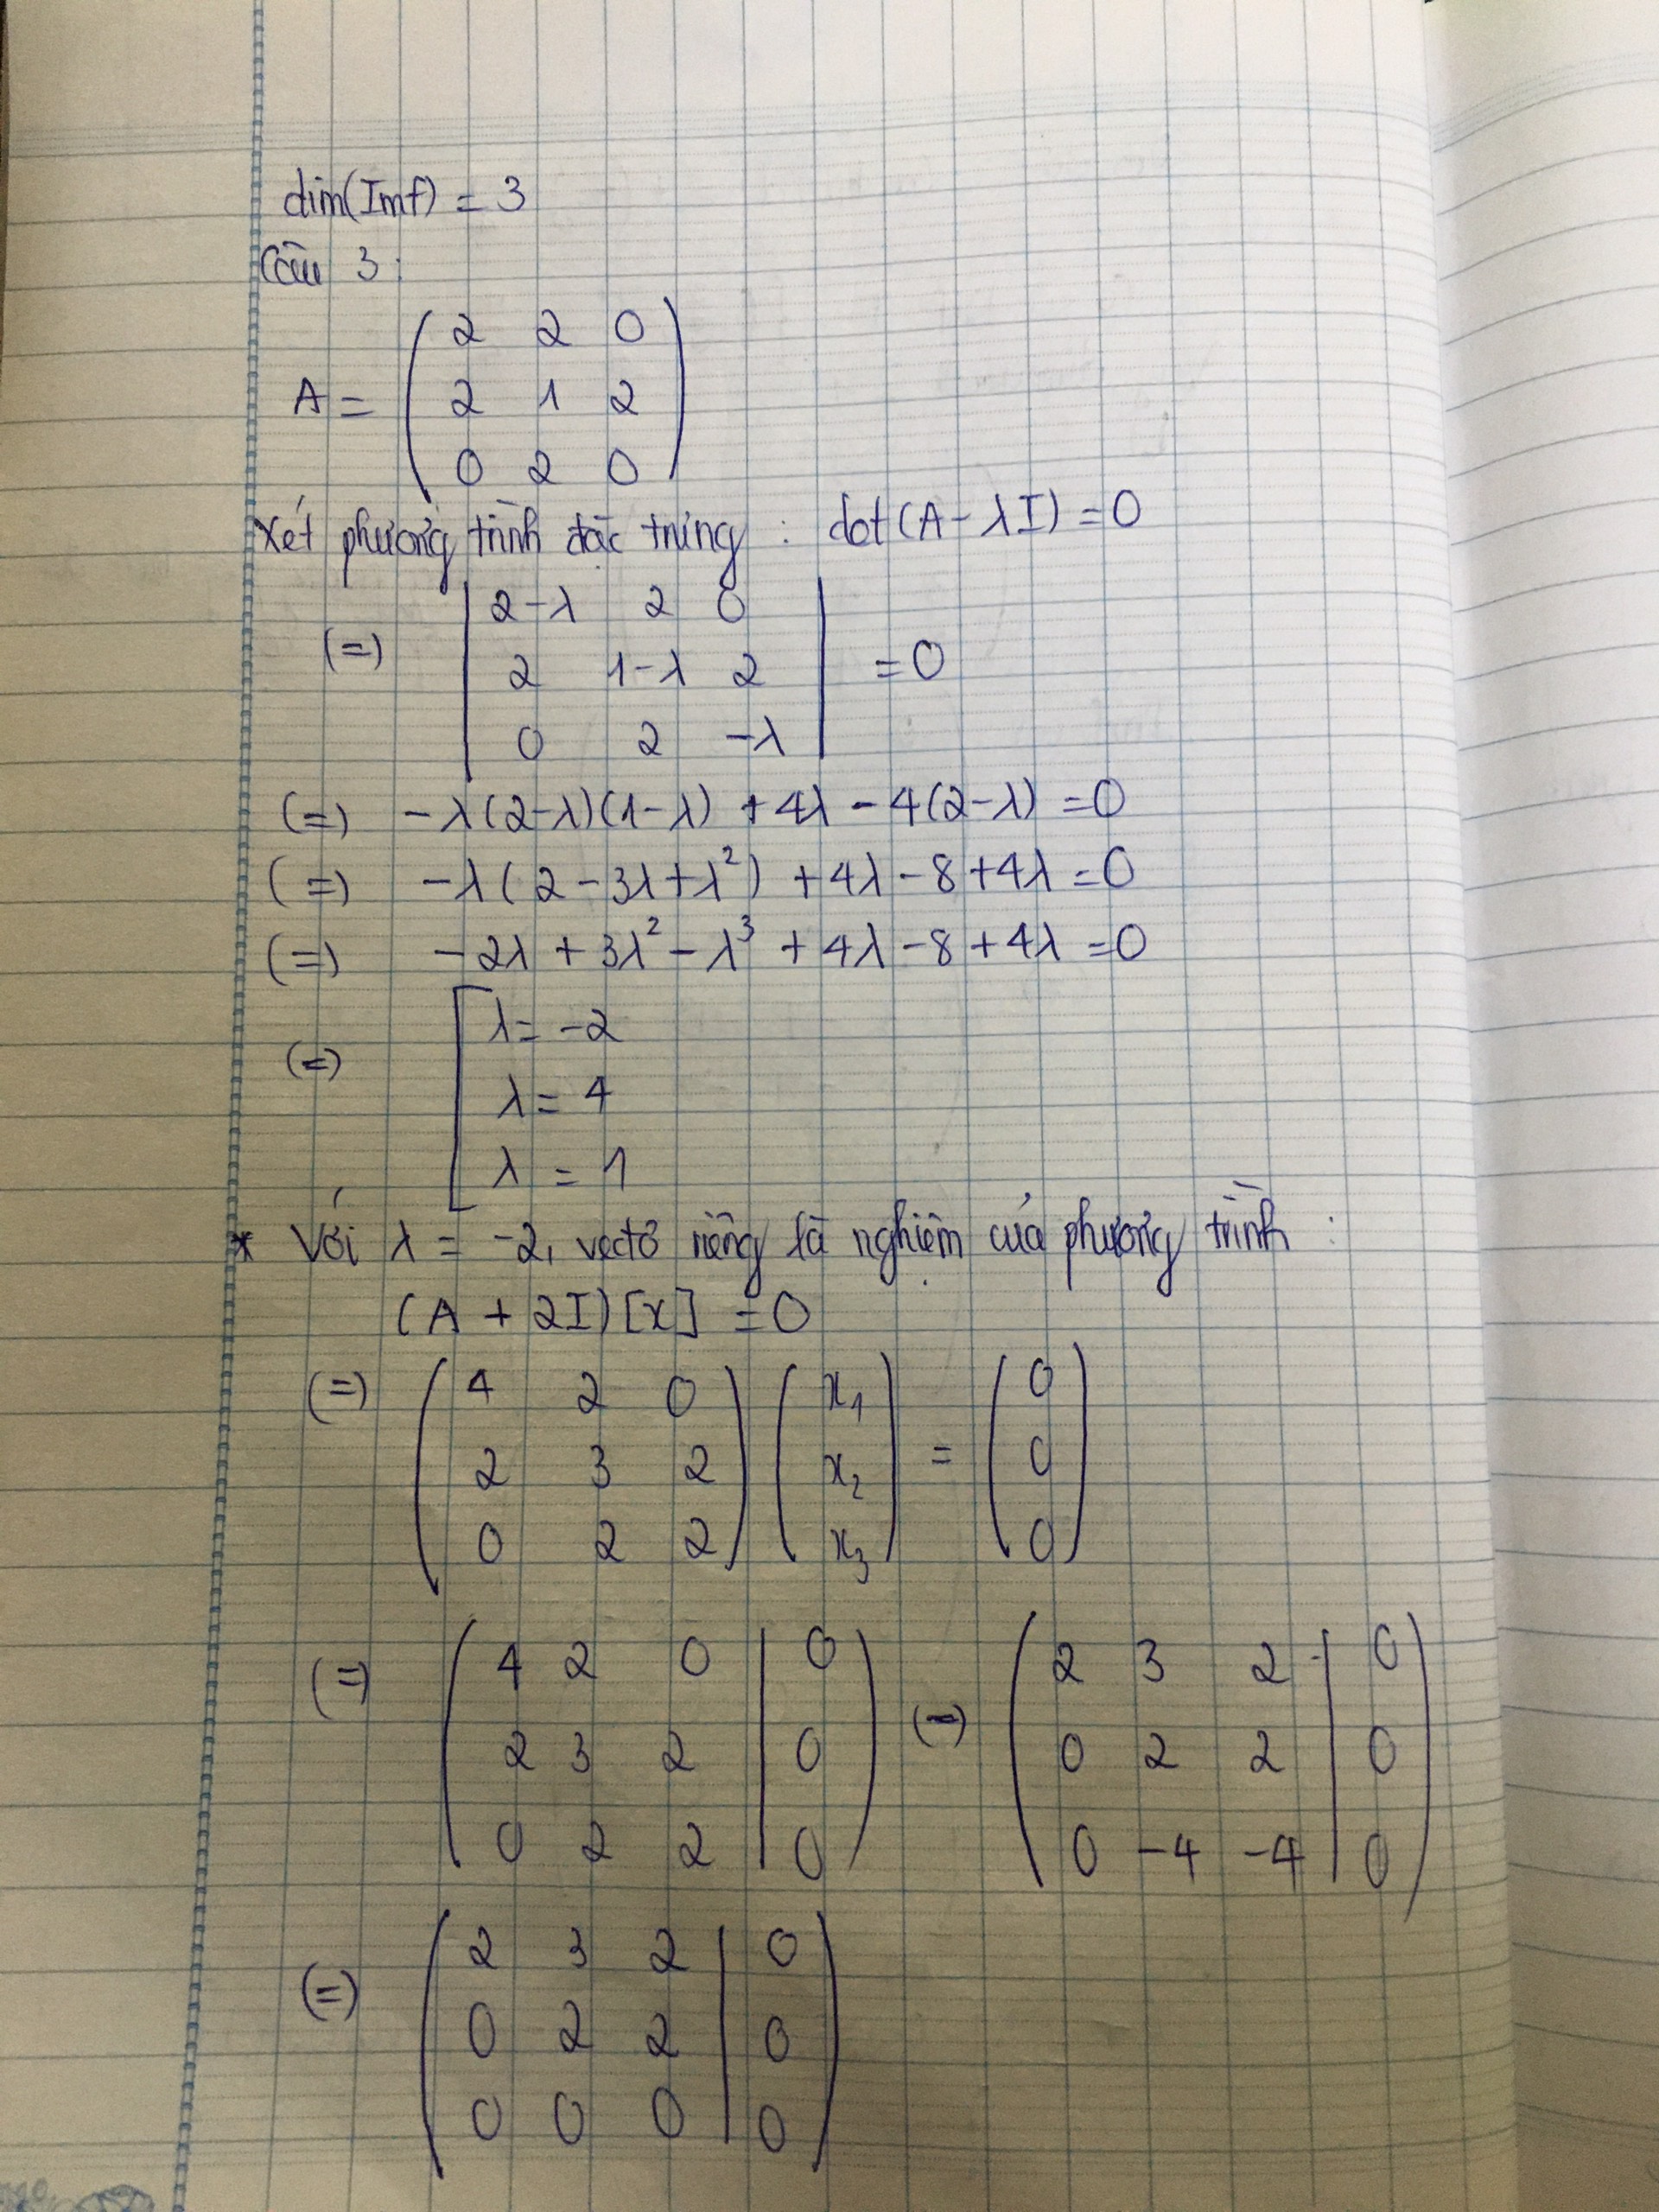 dim(Imf) = 3
Câu 3:
A = ( 2 2 0
2 1 2
0 2 0 )
Xét phương trình đặc trưng : det(A - λI) = 0
(=) | 2-λ 2 0
2 1-λ 2
0 2 -λ | = 0
(=) -λ(2-λ)(1-λ) + 4λ - 4(2-λ) = 0
(=) -λ(2 - 3λ + λ²) + 4λ - 8 + 4λ = 0
(=) -2λ + 3λ² - λ³ + 4λ - 8 + 4λ = 0
(=) [ λ = -2
λ = 4
λ = 1
* Với λ = -2, vectơ riêng là nghiệm của phương trình :
(A + 2I)[x] = 0
(=) ( 4 2 0 ) ( x₁ ) = ( 0 )
( 2 3 2 ) ( x₂ ) ( 0 )
( 0 2 2 ) ( x₃ ) ( 0 )
(=) ( 4 2 0 | 0 ) (=) ( 2 3 2 | 0 )
( 2 3 2 | 0 ) ( 0 2 2 | 0 )
( 0 2 2 | 0 ) ( 0 -4 -4 | 0 )
(=) ( 2 3 2 | 0 )
( 0 2 2 | 0 )
( 0 0 0 | 0 )